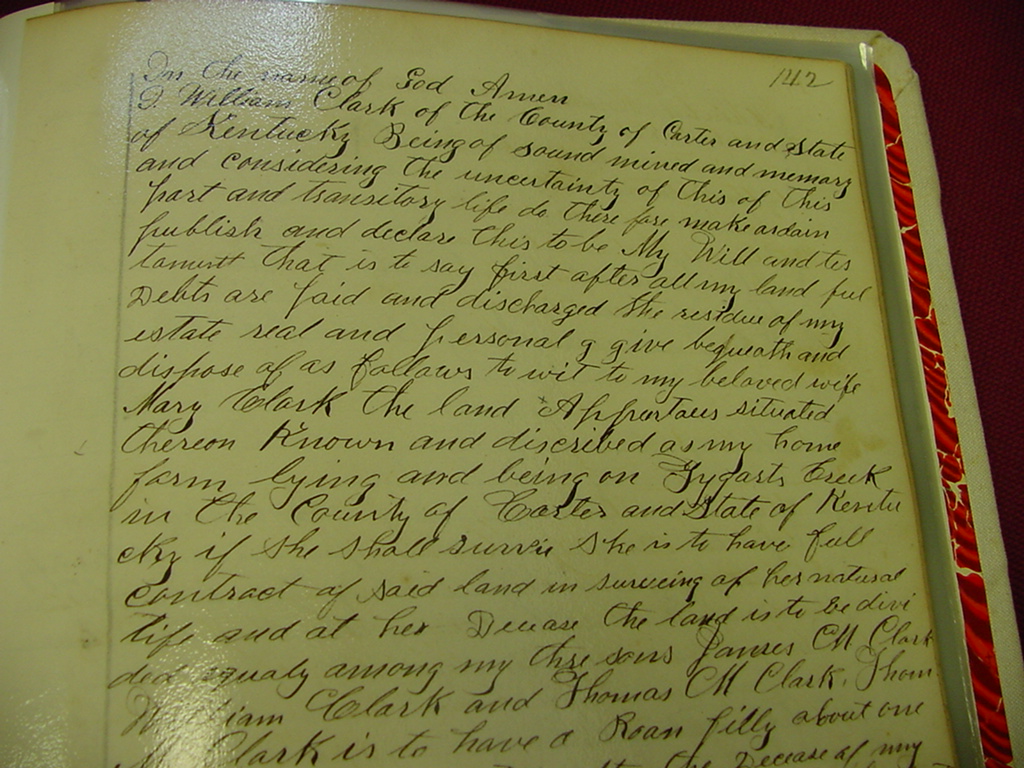 142
In the name of God Amen
I William Clark of the County of Carter and State
of Kentucky Being of sound mined and memory
and considering the uncertainty of this of this
part and transitory life do there fore make ordain
publish and declare this to be My Will and tes
tament that is to say first after all my land ful
Debts are paid and discharged the residue of my
estate real and personal I give bequeath and
dispose of as follows to wit to my beloved wife
Mary Clark the land situated
thereon Known and discribed as my home
farm lying and being on Tygarts Creek
in the County of Carter and State of Kentu
cky if She shall survie She is to have full
contract of said land in surveing of her natural
life and at her Decease the land is to be divi
ded equaly among my thre sons James M Clark
William Clark and Thomas M Clark. Thom
M Clark is to have a Roan filly about one
the Decease of my